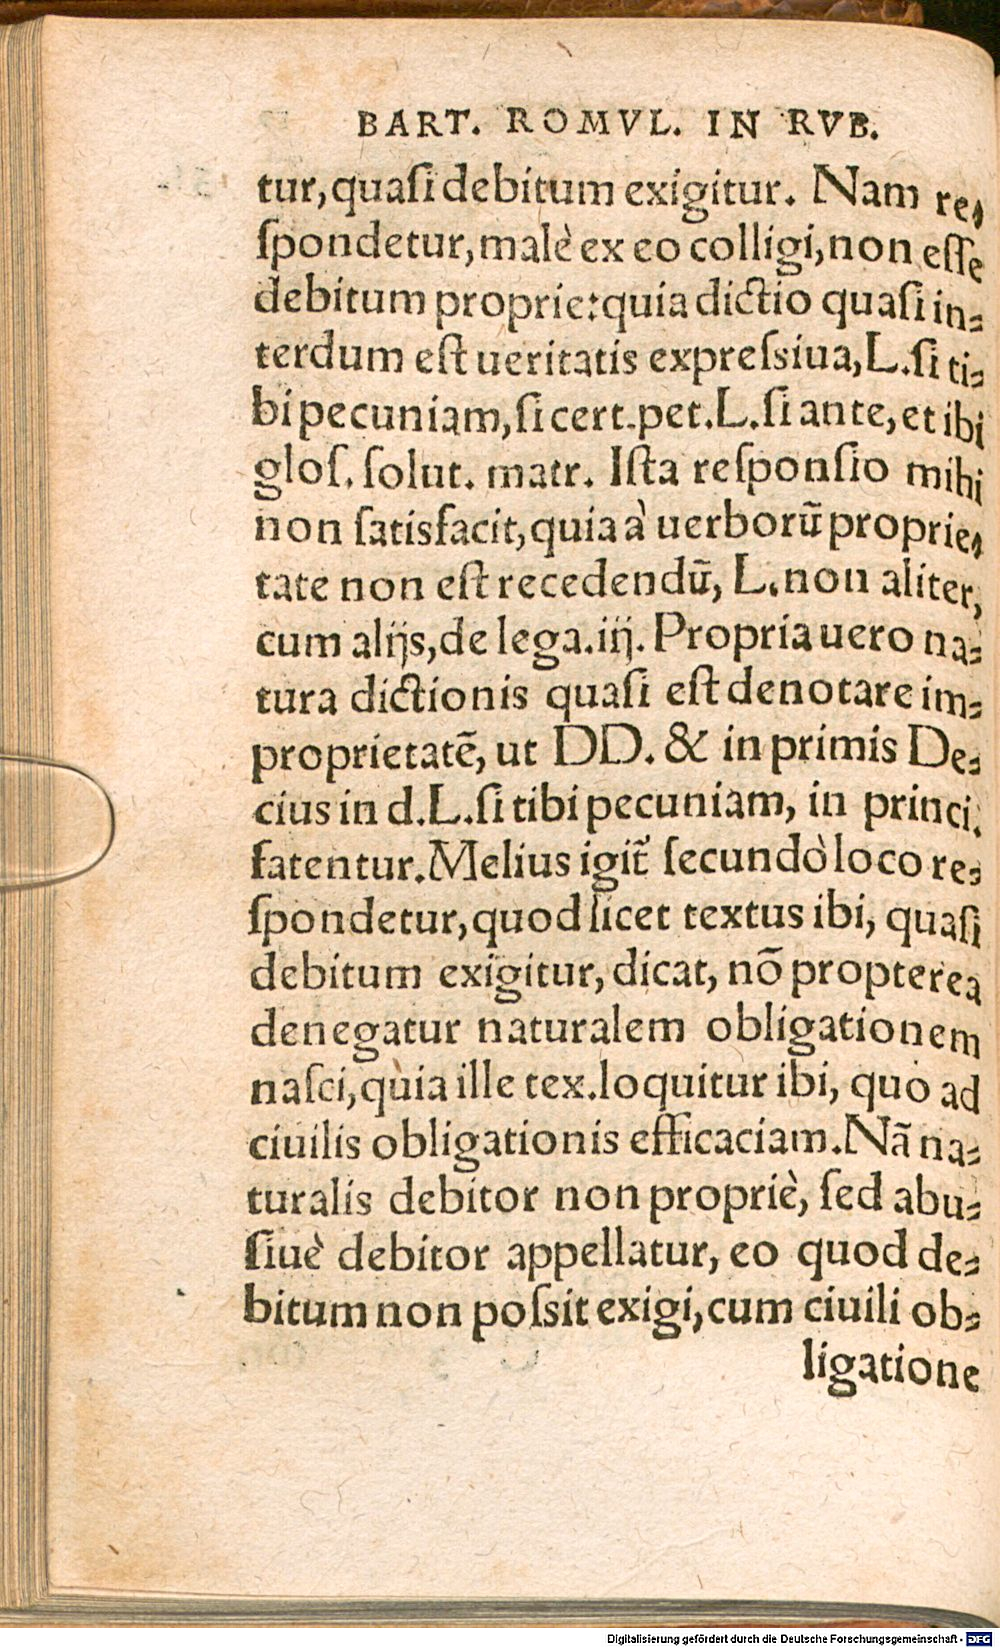 BART. ROMVL. IN RVB.
tur, quaſi debitum exigitur. Nam re⸗
ſpondetur, malè ex eo colligi, non eſſe
debitum proprie: quia dictio quaſi in⸗
terdum eſt ueritatis expreſsiua, L. ſi ti⸗
bi pecuniam, ſi cert. pet. L. ſi ante, et ibi
gloſ. ſolut. matr. Iſta reſponſio mihi
non ſatisfacit, quia à uerborū proprie⸗
tate non eſt recedendū, L. non aliter,
cum alijs, de lega. iij. Propria uero na⸗
tura dictionis quaſi eſt denotare im⸗
proprietatē, ut DD. & in primis De⸗
cius in d. L. ſi tibi pecuniam, in princi.
fatentur. Melius igit̃ ſecundò loco re⸗
ſpondetur, quod licet textus ibi, quaſi
debitum exigitur, dicat, nō propterea
denegatur naturalem obligationem
naſci, quia ille tex. loquitur ibi, quo ad
ciuilis obligationis efficaciam. Nā na⸗
turalis debitor non propriè, ſed abu⸗
ſiuè debitor appellatur, eo quod de⸗
bitum non poſsit exigi, cum ciuili ob⸗
ligatione
Digitalisierung gefördert durch die Deutsche Forschungsgemeinschaft - DFG